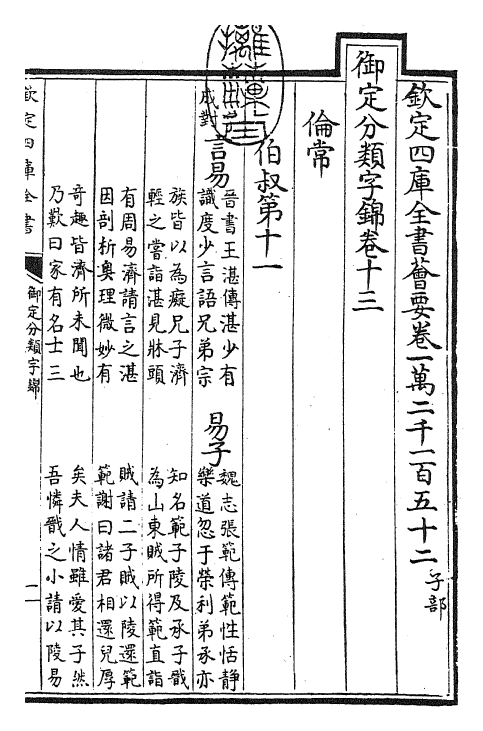 欽定四庫全書薈要卷一萬二千一百五十二子部
御定分類字錦卷十三
倫常
伯叔第十一
成對
言易
晉書王湛傳湛少有
識度少言語兄弟宗
族皆以為癡兄子濟
輕之嘗詣湛見牀頭
有周易濟請言之湛
因剖析奧理微妙有
奇趣皆濟所未聞也
乃歎曰家有名士三
易子
魏志張範傳範性恬靜
樂道忽于榮利弟承亦
知名範子陵及承子戩
為山東賊所得範直詣
賊請二子賊以陵還範
範謝曰諸君相還兒厚
矣夫人情雖愛其子然
吾憐戩之小請以陵易
欽定四庫全書
御定分類字錦